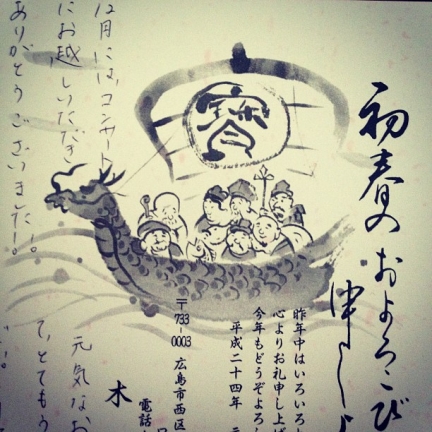 初春の
およろこび
申し
昨年中はいろいろ
心よりお礼申し上げ
今年もどうぞよろ
平成二十四年 元
〒733-0003
広島市西区
電話
木
元気なお
て、とてもう
12月には、コンサート
にお越しいただき
ありがとうございました!!